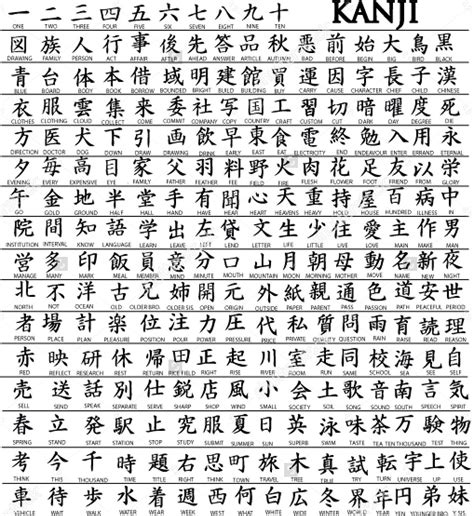 一 二 三 四 五 六 七 八 九 十 KANJI
ONE TWO THREE FOUR FIVE SIX SEVEN EIGHT NINE TEN
図 族 人 行 事 後 先 答 品 秋 悪 前 始 大 鳥 黒
DRAWING FAMILY PERSON ACT AFFAIR AFTER AHEAD ANSWER ARTICLE AUTUMN BAD BEFORE BEGIN BIG BIRD BLACK
青 台 体 本 借 域 明 建 館 買 運 因 字 長 子 漢
BLUE BOARD BODY BOOK BORROW BOUNDED BRIGHT BUILD BUILDING BUY CARRY CAUSE CHARACTER CHIEF CHILD CHINESE
衣 服 雲 集 来 委 社 写 国 工 習 切 暗 曜 度 死
CLOTHES CLOTHING CLOUD COLLECT COME COMMIT COMPANY COPY COUNTRY CRAFT CUSTOM CUT DARK DEGREE DIE
方 医 犬 下 引 画 飲 早 東 食 電 終 勉 入 用 永
DIRECTION DOCTOR DOG DOWN DRAW DRINK EARLY EAST EAT ELECTRICITY END ENDEAVOUR ENTER ERRAND ETERNAL
夕 毎 高 目 家 父 羽 料 野 火 肉 花 足 友 以 学
EVENING EVERY EXPENSIVE EYE FAMILY FATHER FEATHER FEE FIRE FLESH FLOWER FOOT FRIEND
午 金 地 半 堂 手 有 心 天 重 持 屋 百 病 中
GO GOLD GROUND HALF HALL HAND HAVE HEART HEAVENS HEAVY HOLD HOUSE HUNDRED ILLNESS IN
院 間 知 語 学 出 左 貸 文 生 少 住 愛 主 作 男
INSTITUTION INTERVAL KNOW LANGUAGE LEARN LEAVE LEFT LEND LETTER LIFE LITTLE LIVE LOVE MAIN MAKE MAN
営 多 印 飯 員 意 分 口 山 月 朝 母 動 名 新 夜
MANAGE MANY MARK MEAL MEMBER MIND MINUTE MOUTH MOUNTAIN MOON MORNING MOTHER MOVE NAME NEW NIGHT
北 不 洋 古 兄 姉 開 元 外 紙 親 通 色 道 安 世
NORTH NOT OCEAN OLD OLDER BRO. OLDER SIS. OPEN ORIGIN OUTSIDE PAPER PARENT PASS PASSION PATH PEACEFUL PERIOD
者 場 計 楽 位 注 力 圧 代 私 質 問 雨 育 読 理
PERSON PLACE PLAN PLEASANT POSITION POUR POWER PRESSURE PRICE PRIVATE QUALITY QUESTION RAIN RAISE READ REASON
赤 映 研 休 帰 田 正 起 川 室 走 同 校 海 見 自
RED REFLECT RESEARCH REST RETURN RICE FIELD RIGHT RISE RIVER ROOM RUN SAME SCHOOL SEA SEE SELF
売 送 話 別 仕 鋭 店 風 小 会 土 歌 音 南 言 気
SELL SEND SPEAK SEPARATE SERVE SHARP SHOP WIND SMALL SOCIETY SOIL SONG SOUND SOUTH SPEECH SPIRIT
春 立 発 駅 止 究 服 夏 日 英 泳 味 茶 万 験 物
SPRING STAND START STATION STOP STUDY SUBMIT SUMMER SUN SUPERB SWIM TASTE TEA TEN THOUSAND TEST THING
考 今 千 時 題 右 思 町 旅 木 真 試 転 宇 上 使
THINK THIS THOUSAND TIME TITLE RIGHT THINK TOWN TRAVEL TREE TRUE TRY TURN UNIVERSE UP USE
車 待 歩 水 昼 週 西 何 白 女 冬 年 円 弟 妹
VEHICLE WAIT WALK WATER WEEK WEST WHAT WHITE WOMAN WINTER WORLD YEAR YEN YOUNGER BRO.